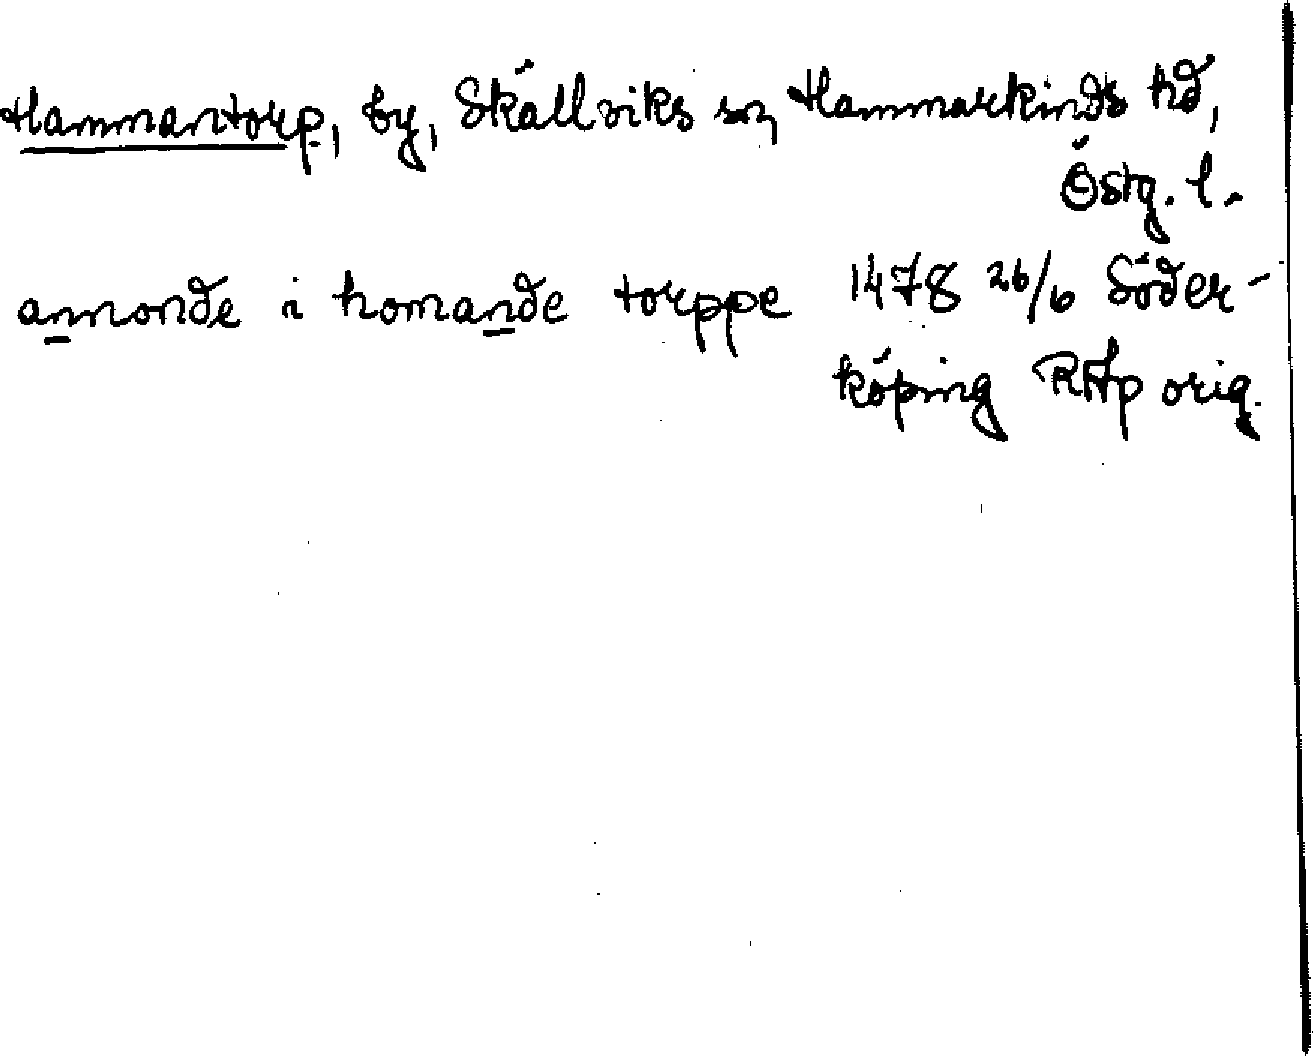 Hammantorp, by, Skällviks sn, Hammarkinds hd,
Östg. l.
amonde i homande torppe 1478 26/6 Söder-
köping RAp orig.